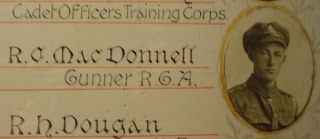 Cadet Officers Training Corps.
R.C. MacDonnell
Gunner R.G.A.
R.H. Dougan